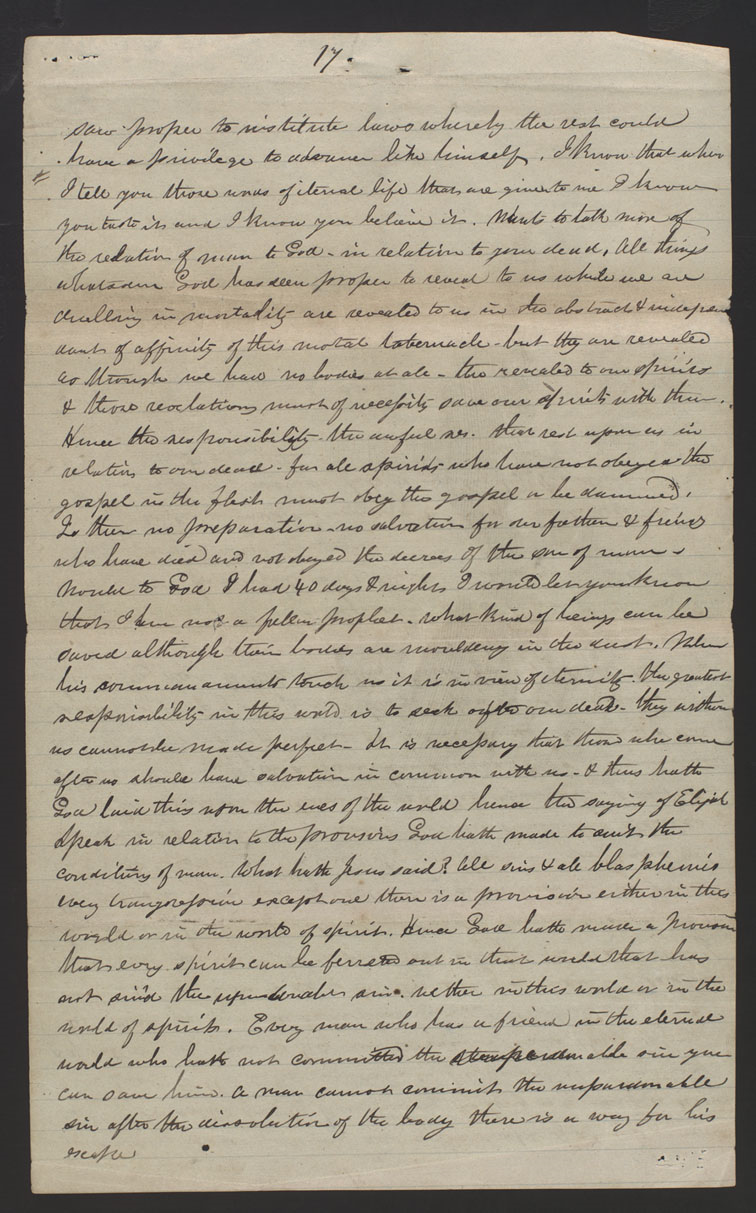 17.
saw proper to institute laws whereby the rest could
have a privilege to advance like himself. I know that when
I tell you those words of eternal life that are given to me I know
you taste it and I know you believe it. Wants to talk more of
the relation of man to God - in relation to your dead. All things
whatsoever God has seen proper to reveal to us while we are
dwelling in mortality are revealed to us in the abstract & indepen
dant of affinity of this mortal tabernacle - but they are revealed
as though we had no bodies at all - the revealed to our spirits
& those revelations must of necessity save our spirits with them.
Hence the responsibility - the awfulnes. that rest upon us in
relation to our dead - for all spirits who have not obeyed the
gospel in the flesh must obey the gospel or be damned.
Is ther no preparation - no salvation for our fathers & friends
who have died and not obeyed the decrees of the son of man -
Would to God I had 40 days & nights I would let you know
that I am not a fallen prophet - what kind of beings can be
saved although their bodies are mouldering in the dust. When
his commandments touch us it is in view of eternity - the greatest
responsibility in this world is to seek after our dead - they without
us cannot be made perfect - It is necessary that those who come
after us should have salvation in common with us - & thus hath
God laid this upon the eyes of the world hence the saying of Elijah
Speak in relation to the provisions God hath made to suit the
conditions of man. What hath Jesus said? All sins & all blasphemies
every transgression except one there is a provision either in this
world or in the world of spirits. Hence God hath made a provision
that every spirit can be ferreted out in that world that has
not sin'd the unpardonable sin. neither in this world or in the
world of spirits. Every man who has a friend in the eternal
world who hath not committed the unpardonable sin you
can save him. A man cannot commit the unpardonable
sin after the dissolution of the body there is a way for his
escape